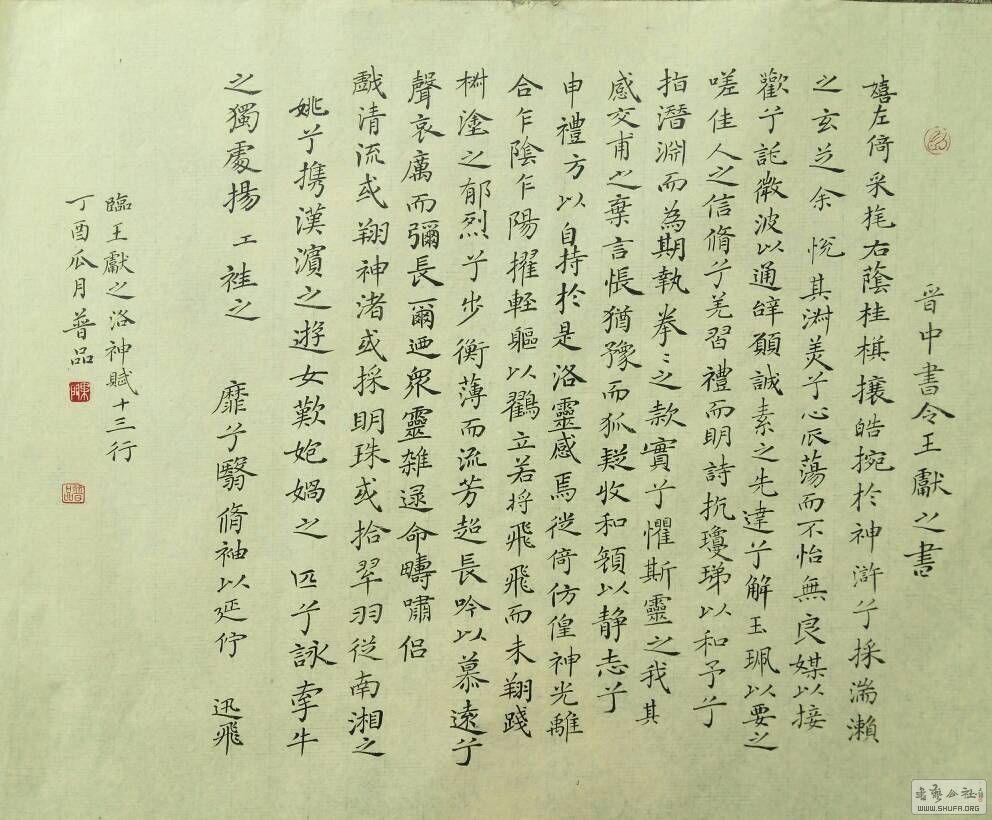 晉中書令王獻之書
嬉左倚采旄右蔭桂棋攘皓捥於神滸兮採湍瀨
之玄芝余悅其淑美兮心辰蕩而不怡無良媒以接
歡兮託微波以通辭願誠素之先達兮解玉珮以要之
嗟佳人之信脩兮羌習禮而明詩抗瓊珶以和予兮
指潛淵而為期執拳ミ之款實兮懼斯靈之我其
感交甫之棄言悵猶豫而狐疑收和顏以静志兮
申禮方以自持於是洛靈感焉徙倚仿偟神光離
合乍陰乍陽擢輕軀以鸖立若將飛飛而未翔踐
椒塗之郁烈兮步衡薄而流芳超長吟以慕遠兮
聲哀厲而彌長爾迺衆靈雜遝命疇嘯侣
戲清流或翔神渚或採明珠或拾翠羽從南湘之
姚兮携漢濱之遊女歎匏媧之匹兮詠牽牛
之獨處揚袿之靡兮翳脩袖以延佇迅飛
臨王獻之洛神賦十三行
丁酉瓜月普品
書藝公社
WWW.SHUFA.ORG